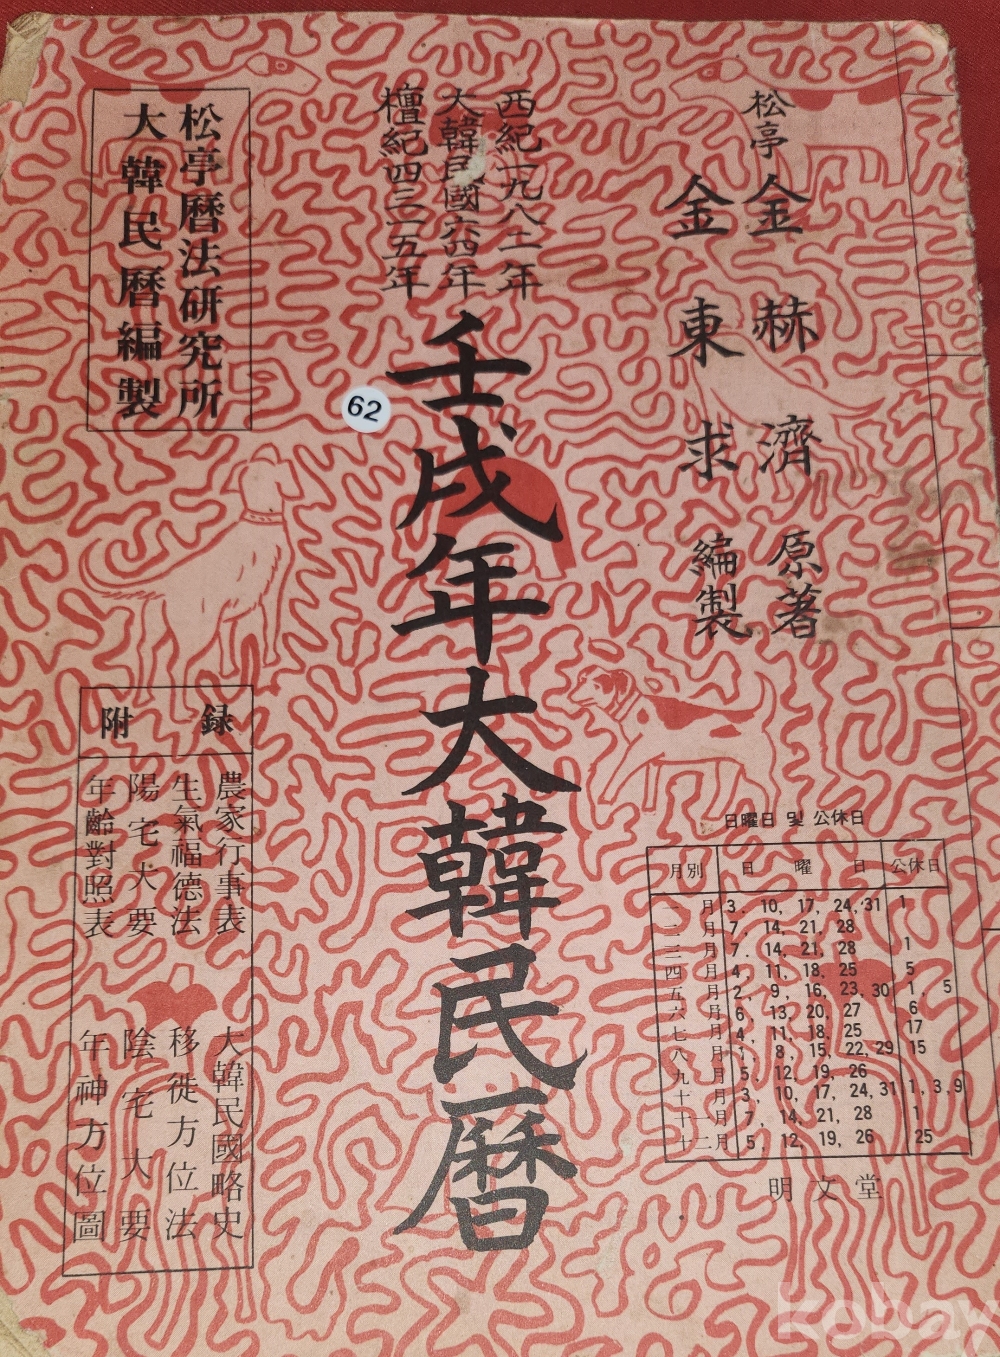 松亭
金赫濟 原著
金東求 編製
西紀一九八二年
大韓民國六四年
檀紀四三一五年
壬戌年大韓民曆
松亭曆法研究所
大韓民曆編製
62
附 録
農家行事表 大韓民國略史
生氣福德法 移徙方位法
陽宅大要 陰宅大要
年齡對照表 年神方位圖
日曜日 및 公休日
月別 日曜日 公休日
一月 3. 10, 17, 24, 31 1
二月 7, 14, 21, 28
三月 7. 14, 21, 28 1
四月 4, 11, 18, 25 5
五月 2, 9, 16, 23, 30 1, 5
六月 6, 13, 20, 27 6
七月 4, 11, 18, 25 17
八月 1, 8, 15, 22, 29 15
九月 5, 12, 19, 26
十月 3, 10, 17, 24, 31 1, 3, 9
十一月 7, 14, 21, 28 1
十二月 5, 12, 19, 26 25
明文堂
kobay